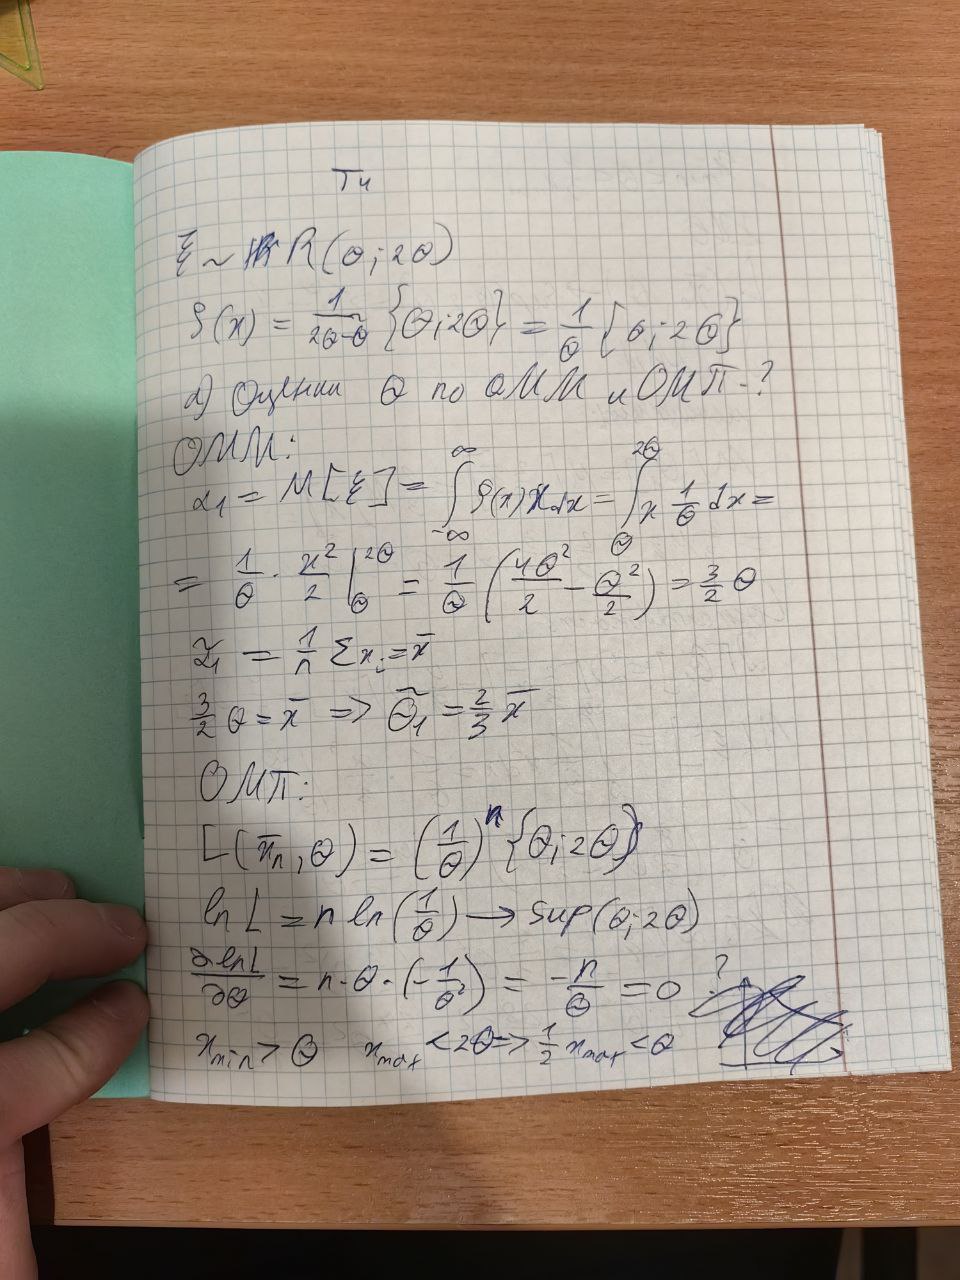 Т4
ξ ~ R(θ; 2θ)
ρ(x) = 1/(2θ-θ) {θ; 2θ} = 1/θ {θ; 2θ}
а) Оценки θ по ОММ и ОМП-?
ОММ:
α₁ = M[ξ] = ∫_{-∞}^{∞} ρ(x) x dx = ∫_{θ}^{2θ} x 1/θ dx =
= 1/θ · x²/2 |_{θ}^{2θ} = 1/θ (4θ²/2 - θ²/2) = 3/2 θ
α̃₁ = 1/n Σxᵢ = x̄
3/2 θ = x̄ => θ̃₁ = 2/3 x̄
ОМП:
L(x̄ₙ, θ) = (1/θ)ⁿ {θ; 2θ}
ln L = n ln(1/θ) → sup(θ; 2θ)
∂lnL/∂θ = n · θ · (-1/θ²) = -n/θ = 0 ?
x_min > θ x_max < 2θ => 1/2 x_max < θ